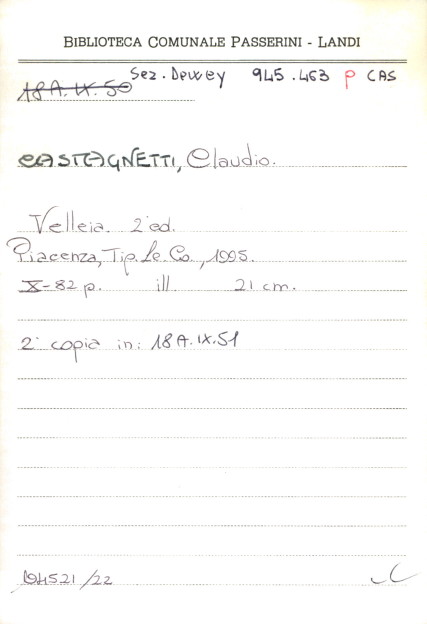 BIBLIOTECA COMUNALE PASSERINI - LANDI
Sez. Dewey 945.463 P CAS
18A.IX.50
CASTAGNETTI, Claudio.
Velleia. 2ª ed.
Piacenza, Tip. Le. Co., 1995.
X-82 p. ill. 21 cm.
2ª copia in: 18A.IX.51
194521/22